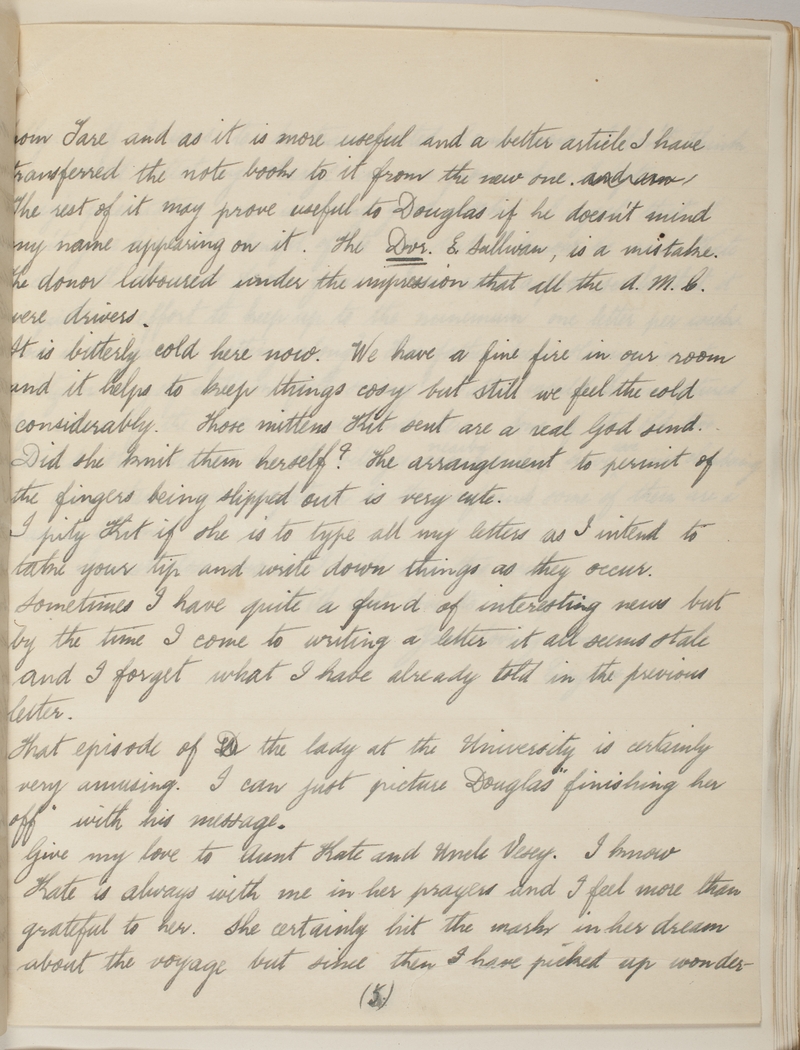 from Tare and as it is more useful and a better article I have
transferred the note book to it from the new one. and am
The rest of it may prove useful to Douglas if he doesn't mind
my name appearing on it. The Dvr. E. Sullivan, is a mistake.
The donor laboured under the impression that all the A. M. C.
were drivers.
It is bitterly cold here now. We have a fine fire in our room
and it helps to keep things cosy but still we feel the cold
considerably. Those mittens Kit sent are a real God send.
Did she knit them herself? The arrangement to permit of
the fingers being slipped out is very cute.
I pity Kit if she is to type all my letters as I intend to
take your tip and write down things as they occur.
Sometimes I have quite a fund of interesting news but
by the time I come to writing a letter it all seems stale
and I forget what I have already told in the previous
letter.
That episode of D the lady at the University is certainly
very amusing. I can just picture Douglas "finishing her
off" with his message.
Give my love to Aunt Kate and Uncle Vesey. I know
Kate is always with me in her prayers and I feel more than
grateful to her. She certainly hit the mark in her dream
about the voyage but since then I have picked up wonder-
(5)